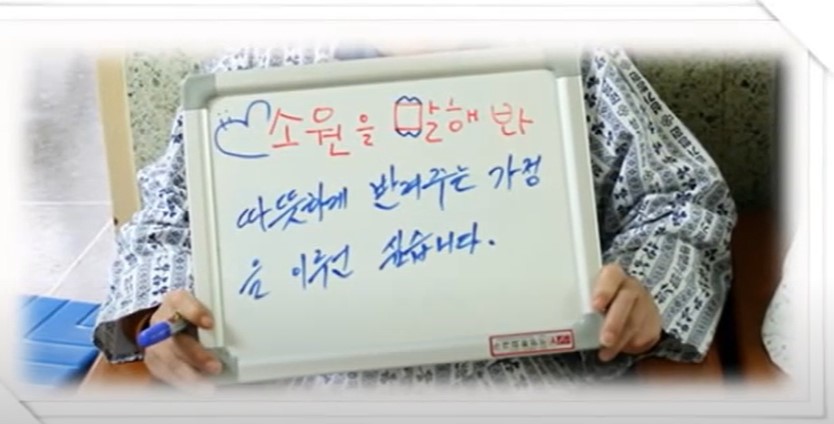 소원을 말해봐
따뜻하게 반겨주는 가정
을 이루고 싶습니다.